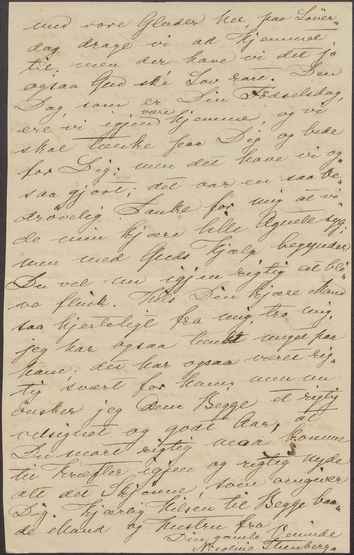 med vore Glæder her, paa Løver-
dag drage vi ad Hjemmet
til, men der have vi det jo
ogsaa Gud ske Lov rart. Den
Dag, som er Din Fødselsdag,
ere vi igjen hjemme, og vi
være
skal tænke paa Dig og bede
for Dig; men det have vi og-
saa gjort; det var en saa be-
drøvelig Tanke for mig at vi-
de min kjære lille Agnete syg;
men med Guds Hjælp begynder
Du vel nu igjen rigtig at bli-
ve flink. Hils Din kjære Mand
saa hjerteligt fra mig, tro mig,
jeg har ogsaa tænkt meget paa
ham; det har ogsaa været rig-
tig svært for ham; men nu
ønsker jeg Dem Begge et rigtig
velsignet og godt Aar, at
Du snart rigtig maa komme
til Kræfter igjen og rigtig nyde
alt det Skjønne, som omgiver
Dig. Kjærlig Hilsen til Begge baa-
de Mand og Hustru fra
Din gamle Veninde
Nicoline